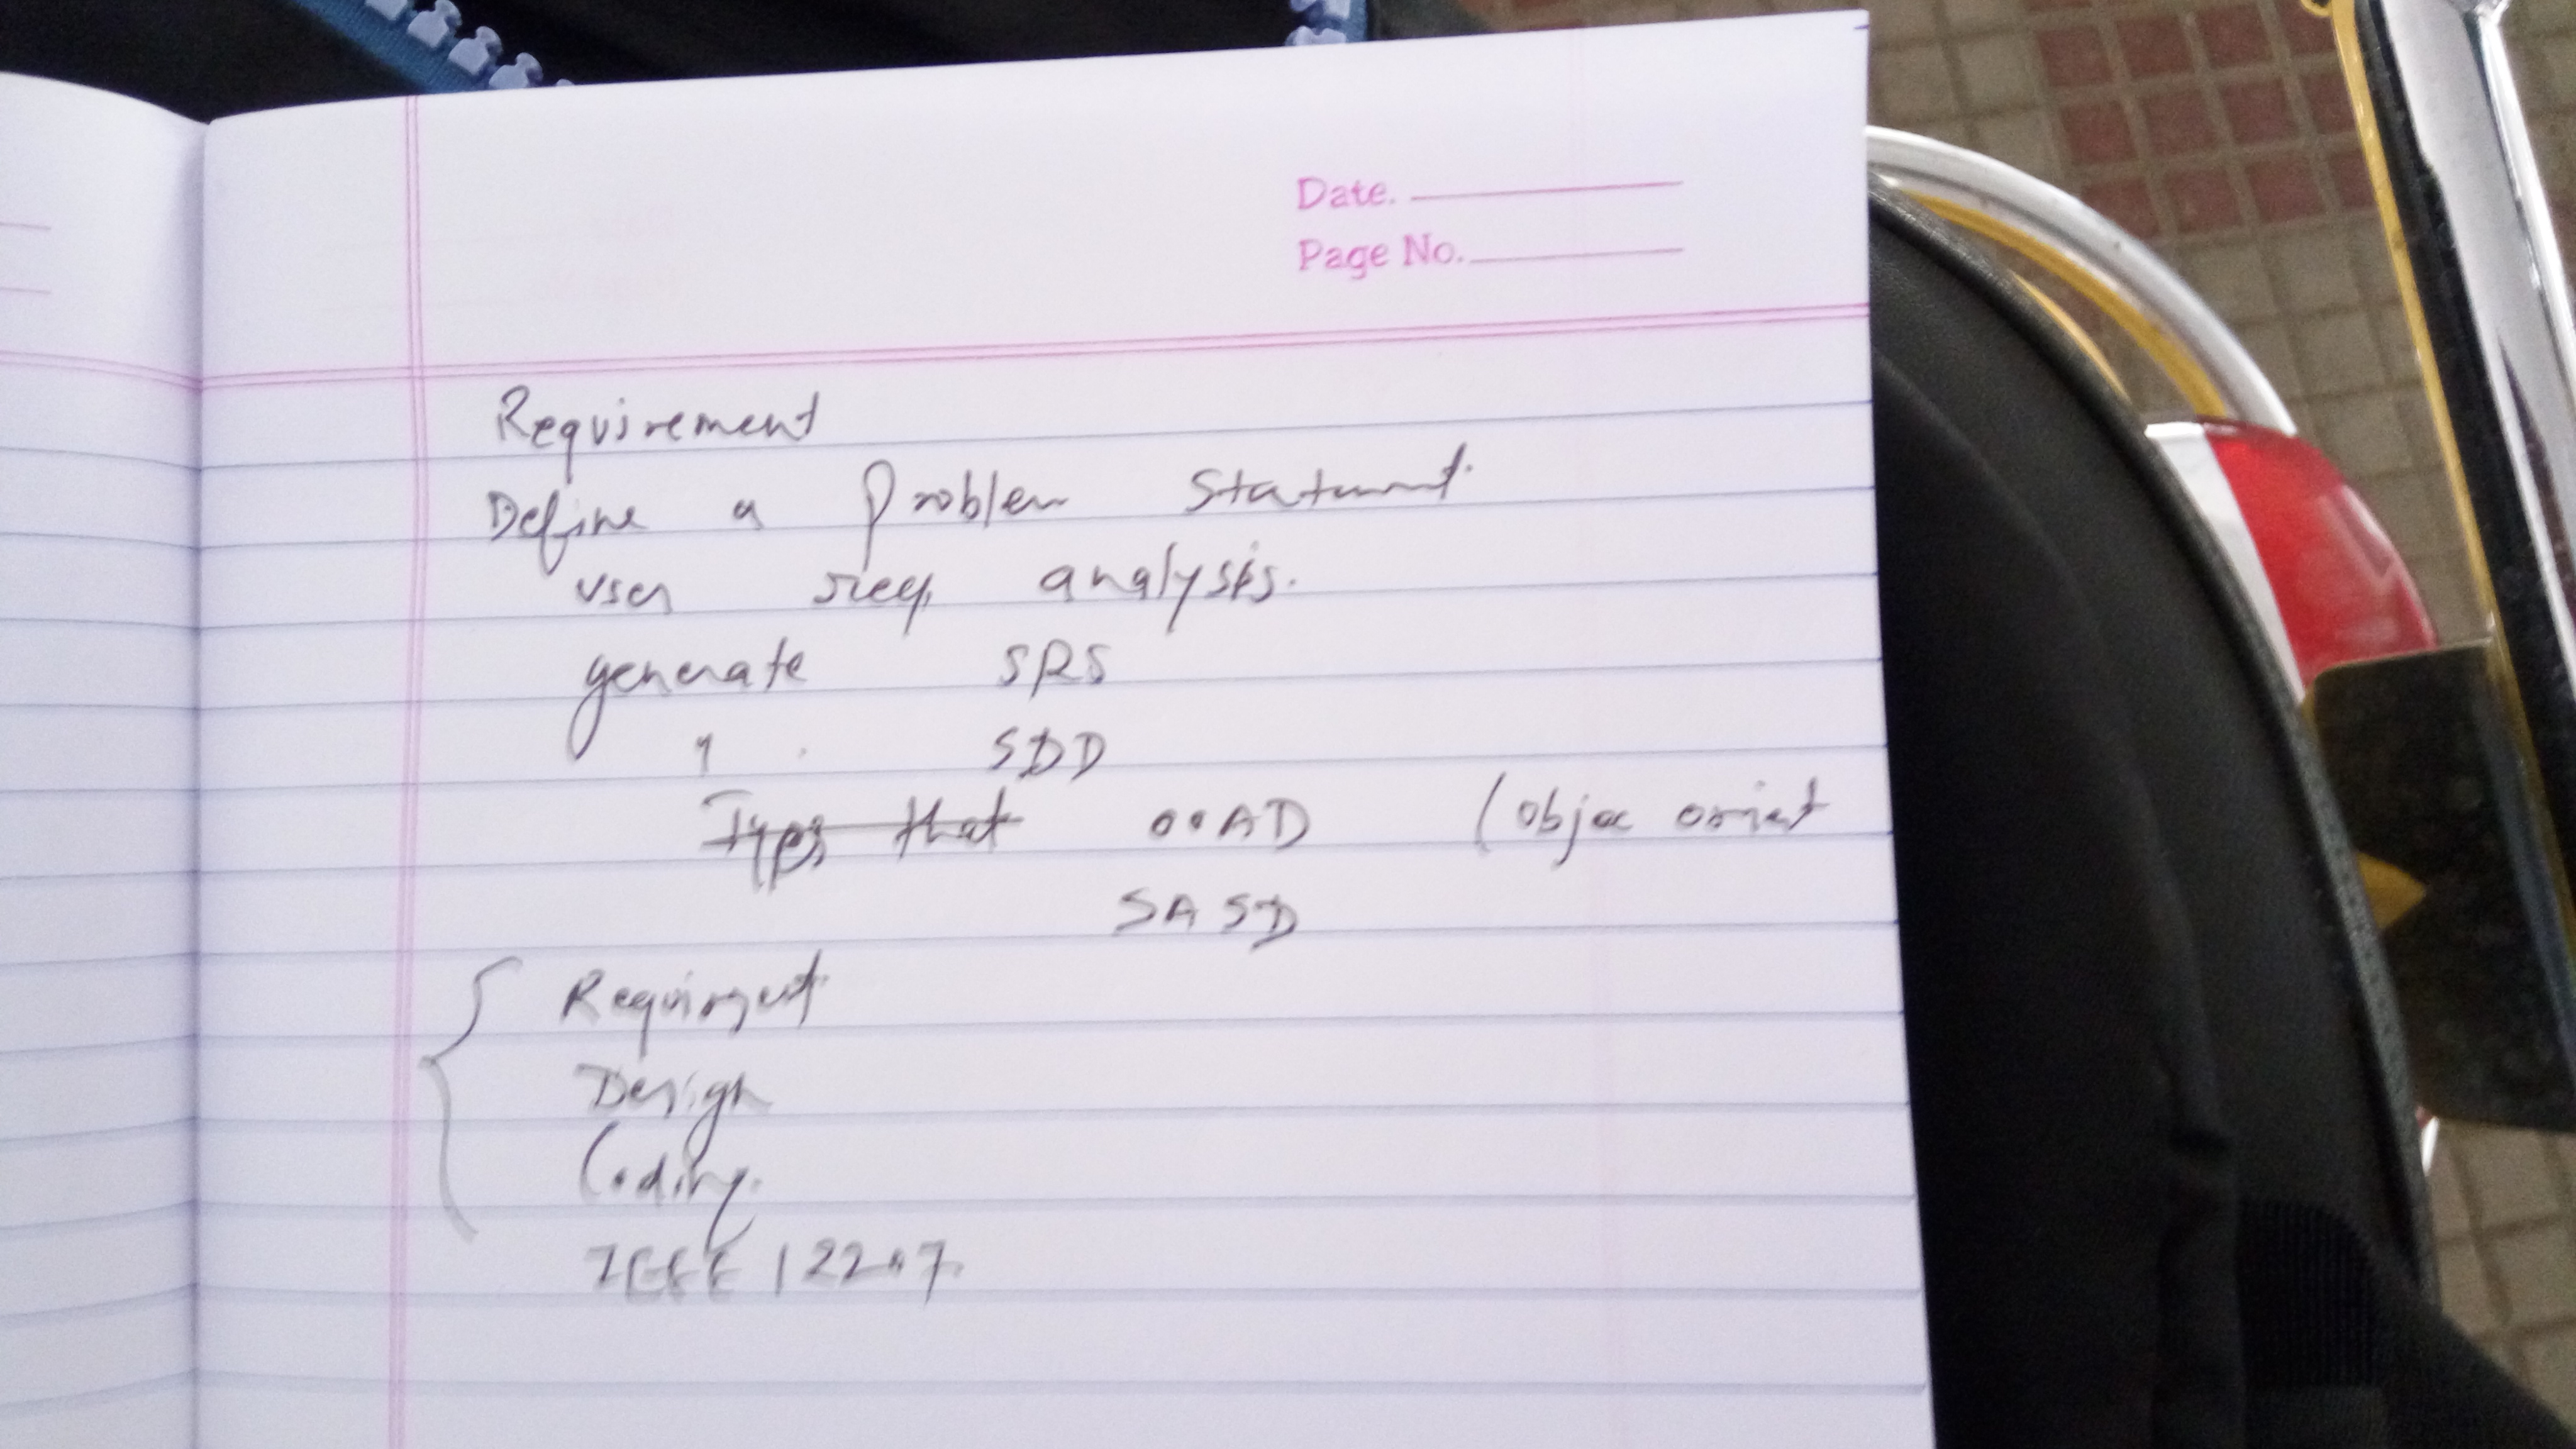 Date.
Page No.
Requirement
Define a Problem Statement.
user req. analysis.
generate SRS
" SDD
Types that OOAD (Objec orient
SASD
Requirement
Design
Coding.
IEEE 12207.